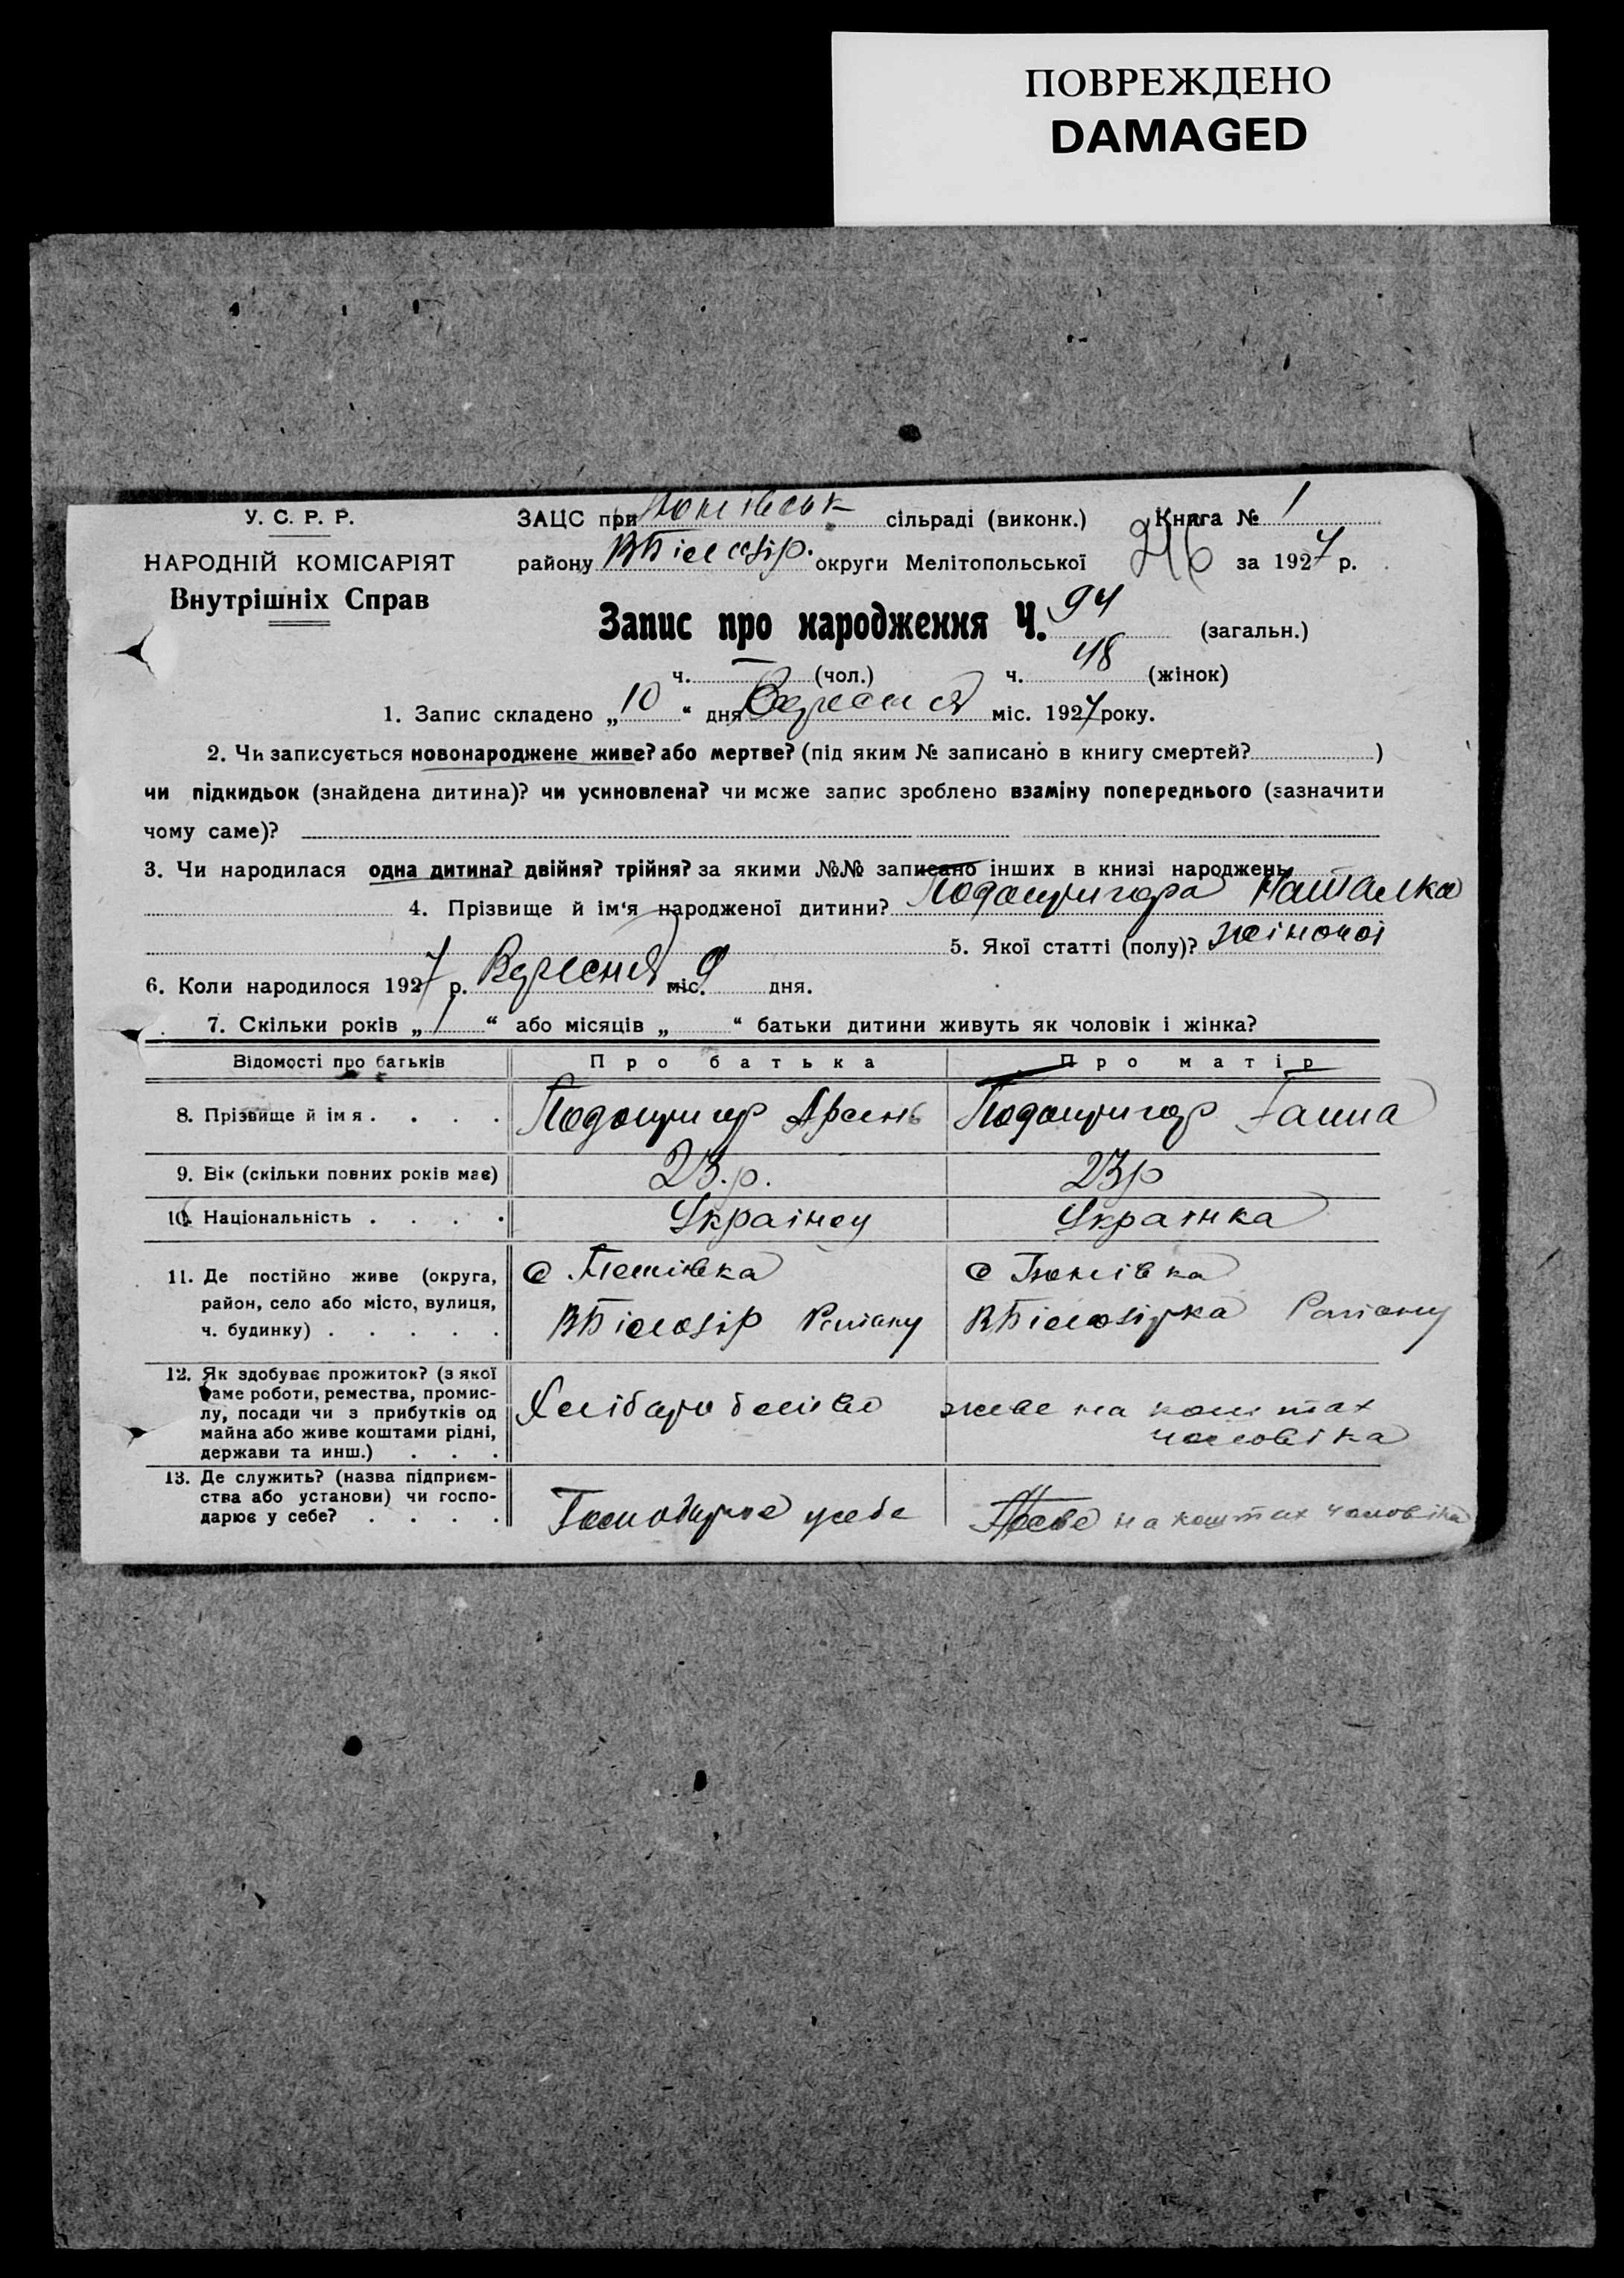 ПОВРЕЖДЕНО
DAMAGED
У. С. Р. Р.
НАРОДНІЙ КОМІСАРІЯТ
Внутрішніх Справ
ЗАЦС при сільраді (виконк.) Книга № 1
району ВБілозір. округи Мелітопольської 26 за 1927 р.
Запис про народження Ч. 94 (загальн.)
ч. — (чол.) ч. 48 (жінок)
1. Запис складено „10“ дня Вересня міс. 1927 року.
2. Чи записується новонароджене живе? або мертве? (під яким № записано в книгу смертей? )
чи підкидьок (знайдена дитина)? чи усиновлена? чи може запис зроблено взаміну попереднього (зазначити
чому саме)?
3. Чи народилася одна дитина? двійня? трійня? за якими №№ записано інших в книзі народжень
4. Прізвище й ім‘я народженої дитини? Подопригора Наталка
5. Якої статті (полу)? жіночоі
6. Коли народилося 1927 р. Вересня міс. 9 дня.
7. Скільки років „1“ або місяців „ “ батьки дитини живуть як чоловік і жінка?
Відомості про батьків Про батька Про матір
8. Прізвище й ім я . . . . Подопригор Арсень Подопригор Ганна
9. Вік (скільки повних років має) 23.р. 23р
10. Національність . . . . Украінец Украінка
11. Де постійно живе (округа,
район, село або місто, вулиця,
ч. будинку) . . . . .
с
с
ВБілозір Району ВБілозірка Району
12. Як здобуває прожиток? (з якої
саме роботи, ремества, промис-
лу, посади чи з прибутків од
майна або живе коштами рідні,
держави та инш.) . . .
Хліборобство живе на коштах
чоловіка
13. Де служить? (назва підприєм-
ства або установи) чи госпо-
дарює у себе? . . . .
Господарює усебе Живе на коштах чоловіка